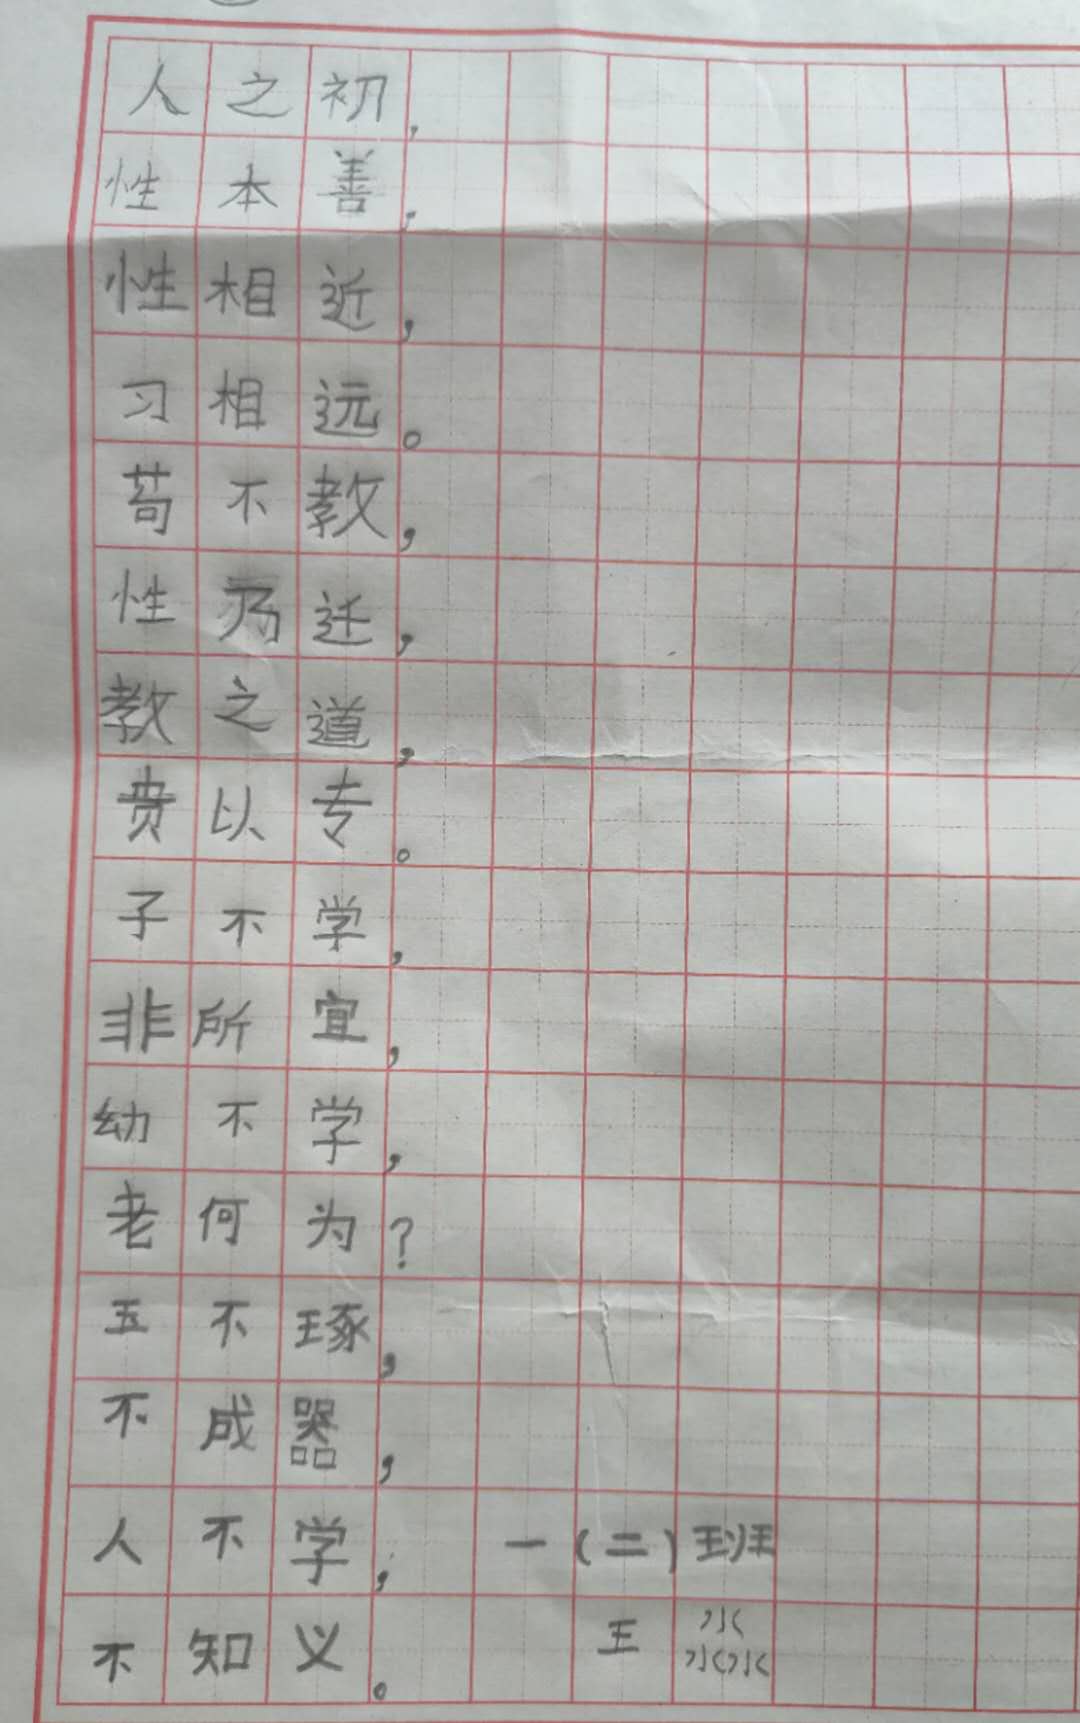 人之初，
性本善，
性相近，
习相远。
苟不教，
性乃迁，
教之道，
贵以专。
子不学，
非所宜，
幼不学，
老何为？
五不琢，
不成器，
人不学， 一（二）班
不知义。 王淼